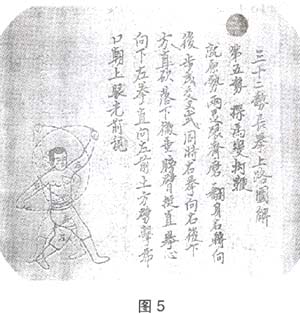 三十二勢長拳上路圖解
第五勢 探馬變拗鞭
就原勢兩足碾磨翻身右轉向
後步成交叉式同時右拳向右後下
方直砍落下微垂膀臂挺直拳心
向下左拳直向左前上方劈擊虎
口朝上眼光前視
图5